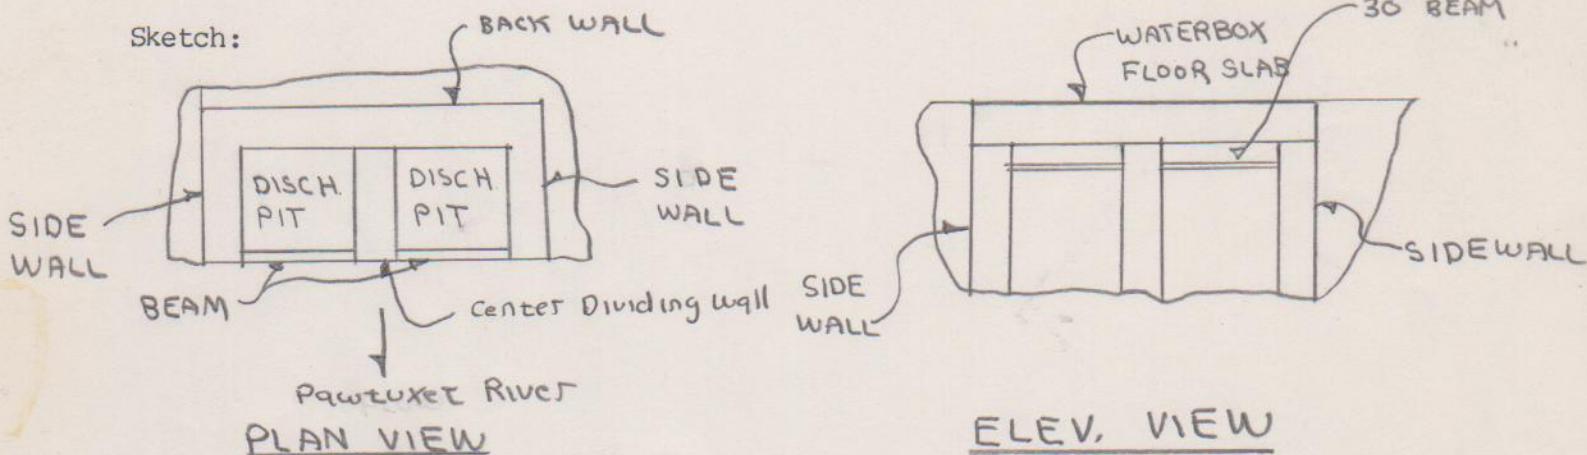 Sketch:
BACK WALL
DISCH.
PIT
DISCH.
PIT
SIDE
WALL
SIDE
WALL
BEAM
Center Dividing Wall
Pawtuxet River
PLAN VIEW
30 BEAM
WATERBOX
FLOOR SLAB
SIDE
WALL
SIDEWALL
ELEV. VIEW